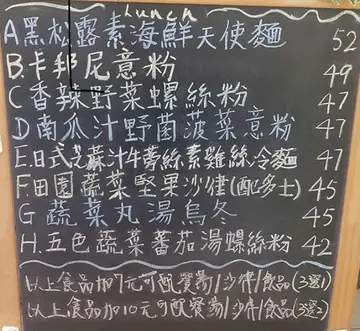 Lunch
A黑松露素海鮮天使麵 52
B.卡邦尼意粉 49
C香辣野菜螺絲粉 47
D南瓜汁野菌菠菜意粉 47
E.日式芝蔴汁牛蒡絲素雞絲冷麵 47
F.田園蔬菜堅果沙律(配多士) 45
G蔬菜丸湯烏冬 45
H.五色蔬菜蕃茄湯螺絲粉 42
以上食品加7元可配餐湯/沙律/飲品(3選1)
以上食品加10元可配餐湯/沙律/飲品(3選2)